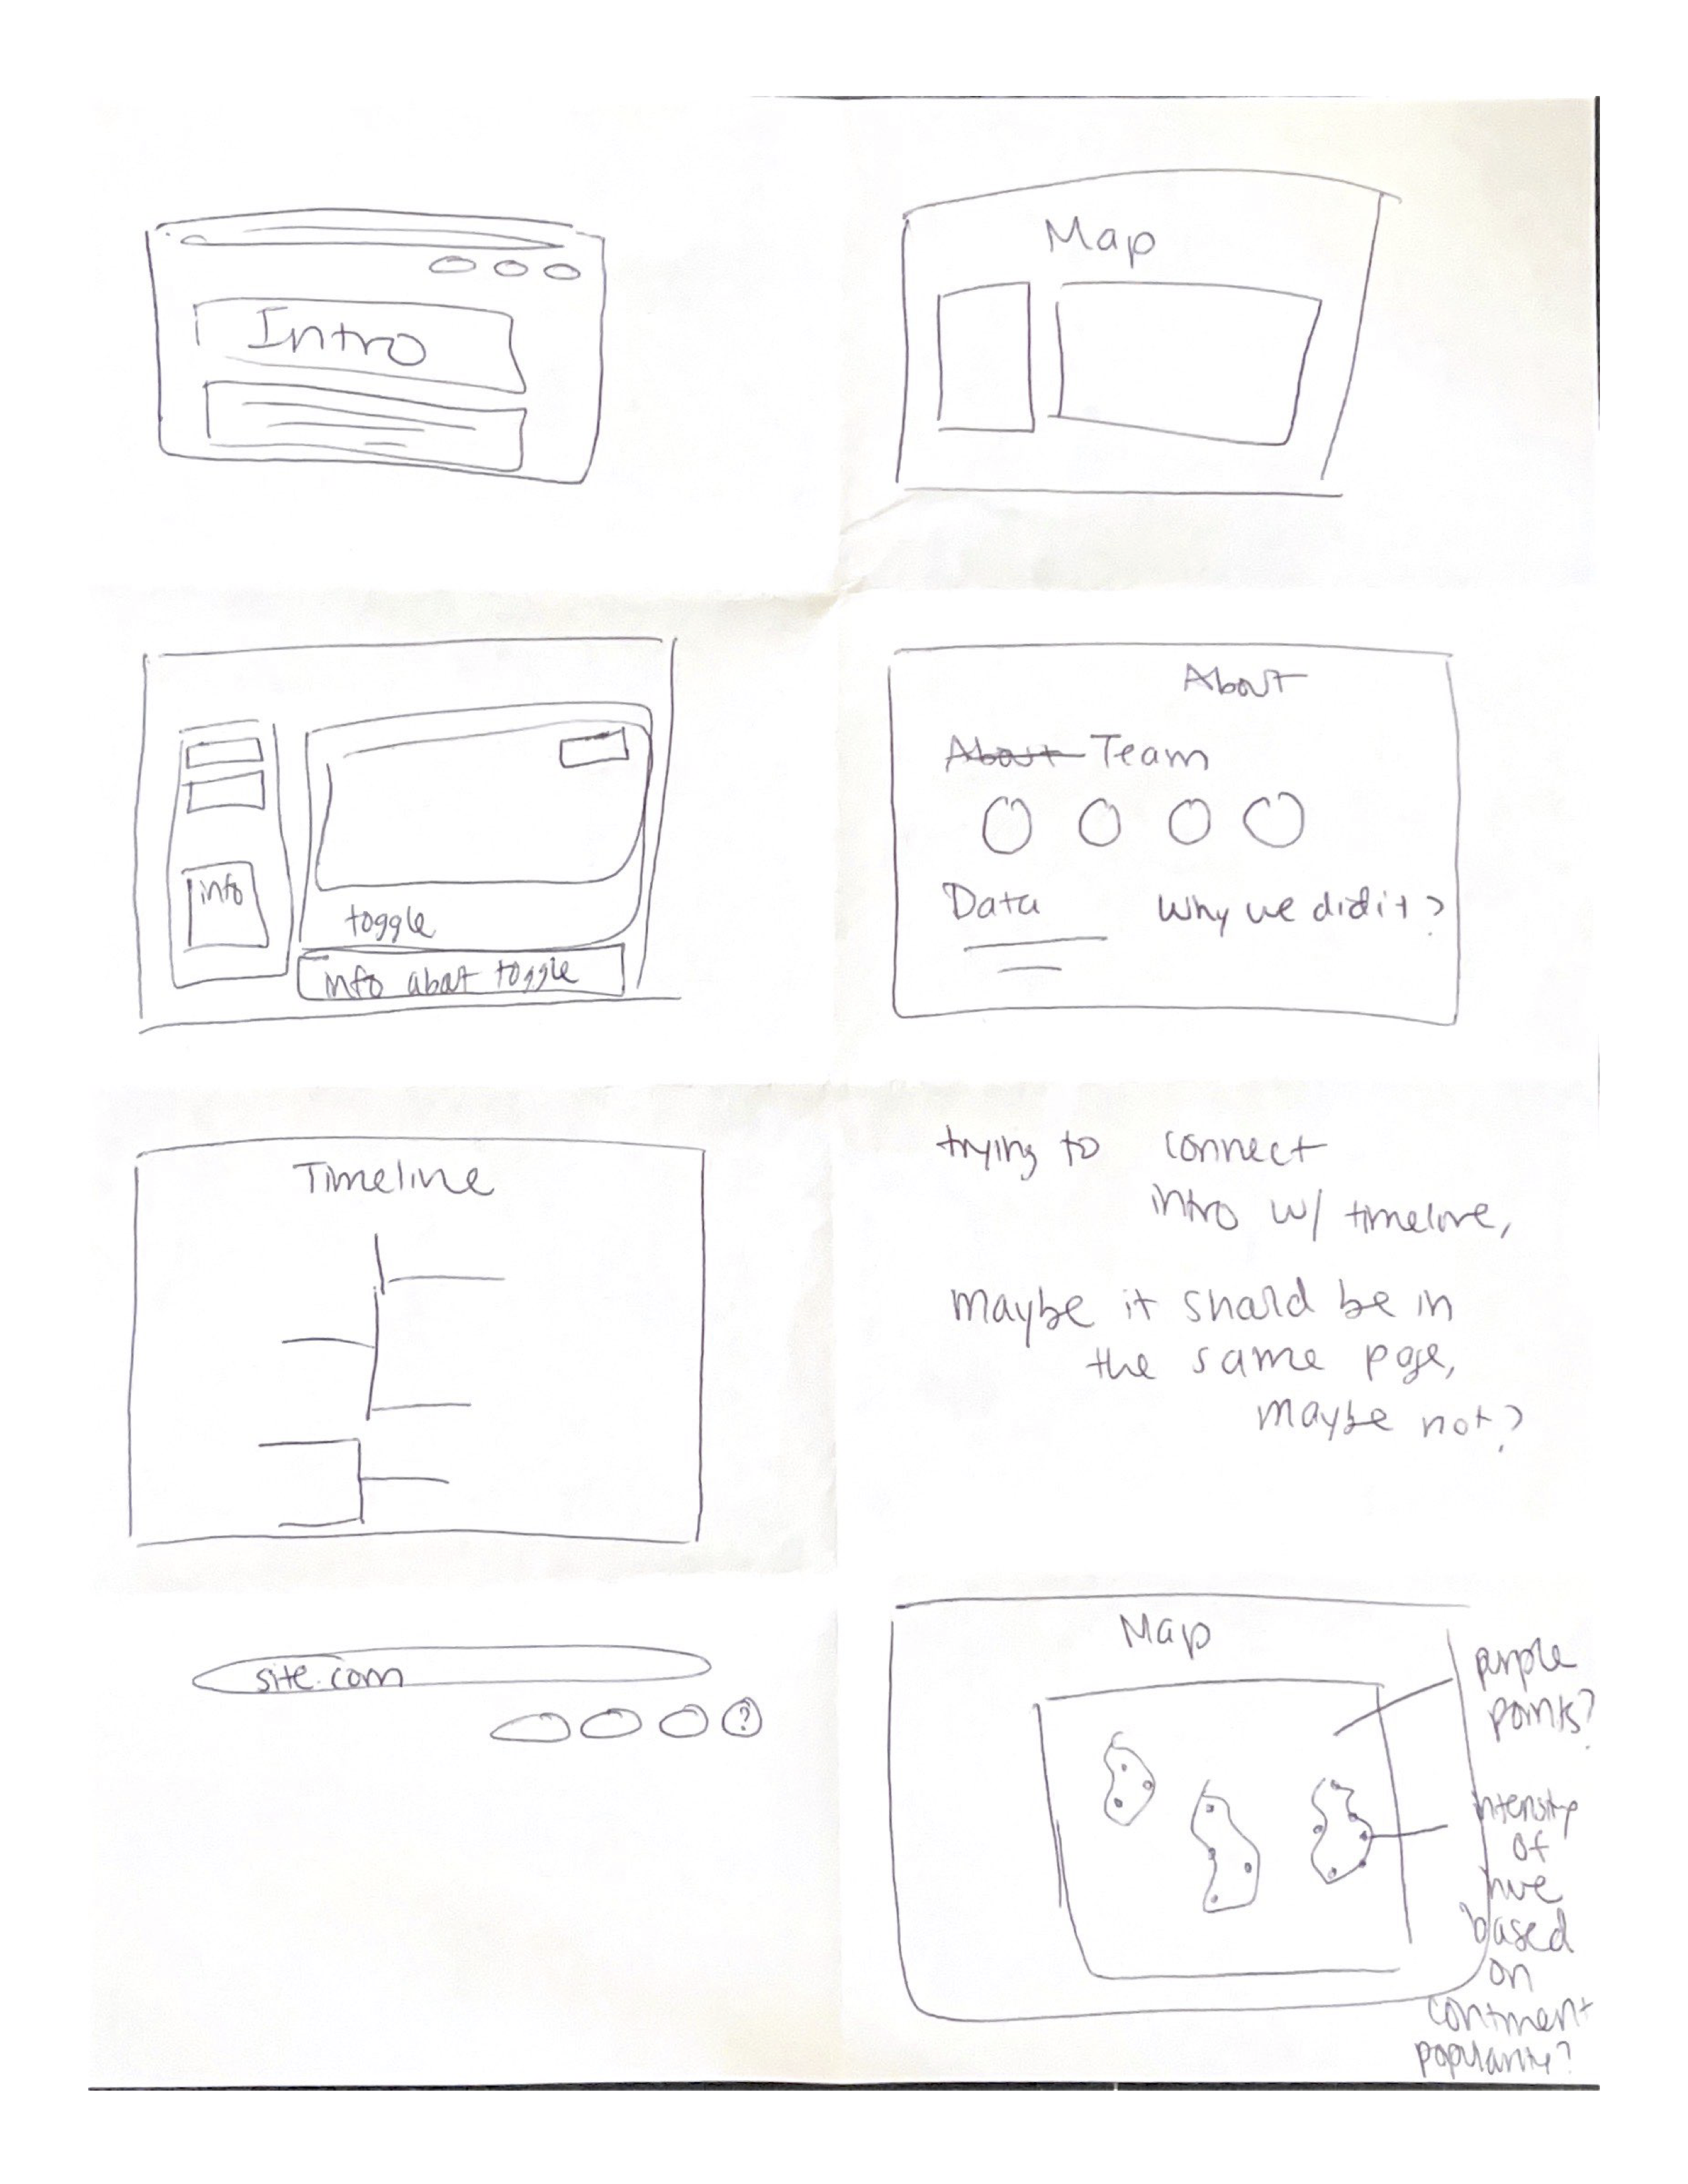 Intro
Map
info
toggle
info about toggle
About
About Team
Data
Why we did it?
Timeline
trying to connect
intro w/ timeline,
maybe it should be in
the same page,
maybe not?
site.com
?
Map
purple
points?
intensity
of
hue
based
on
continent
popularity?